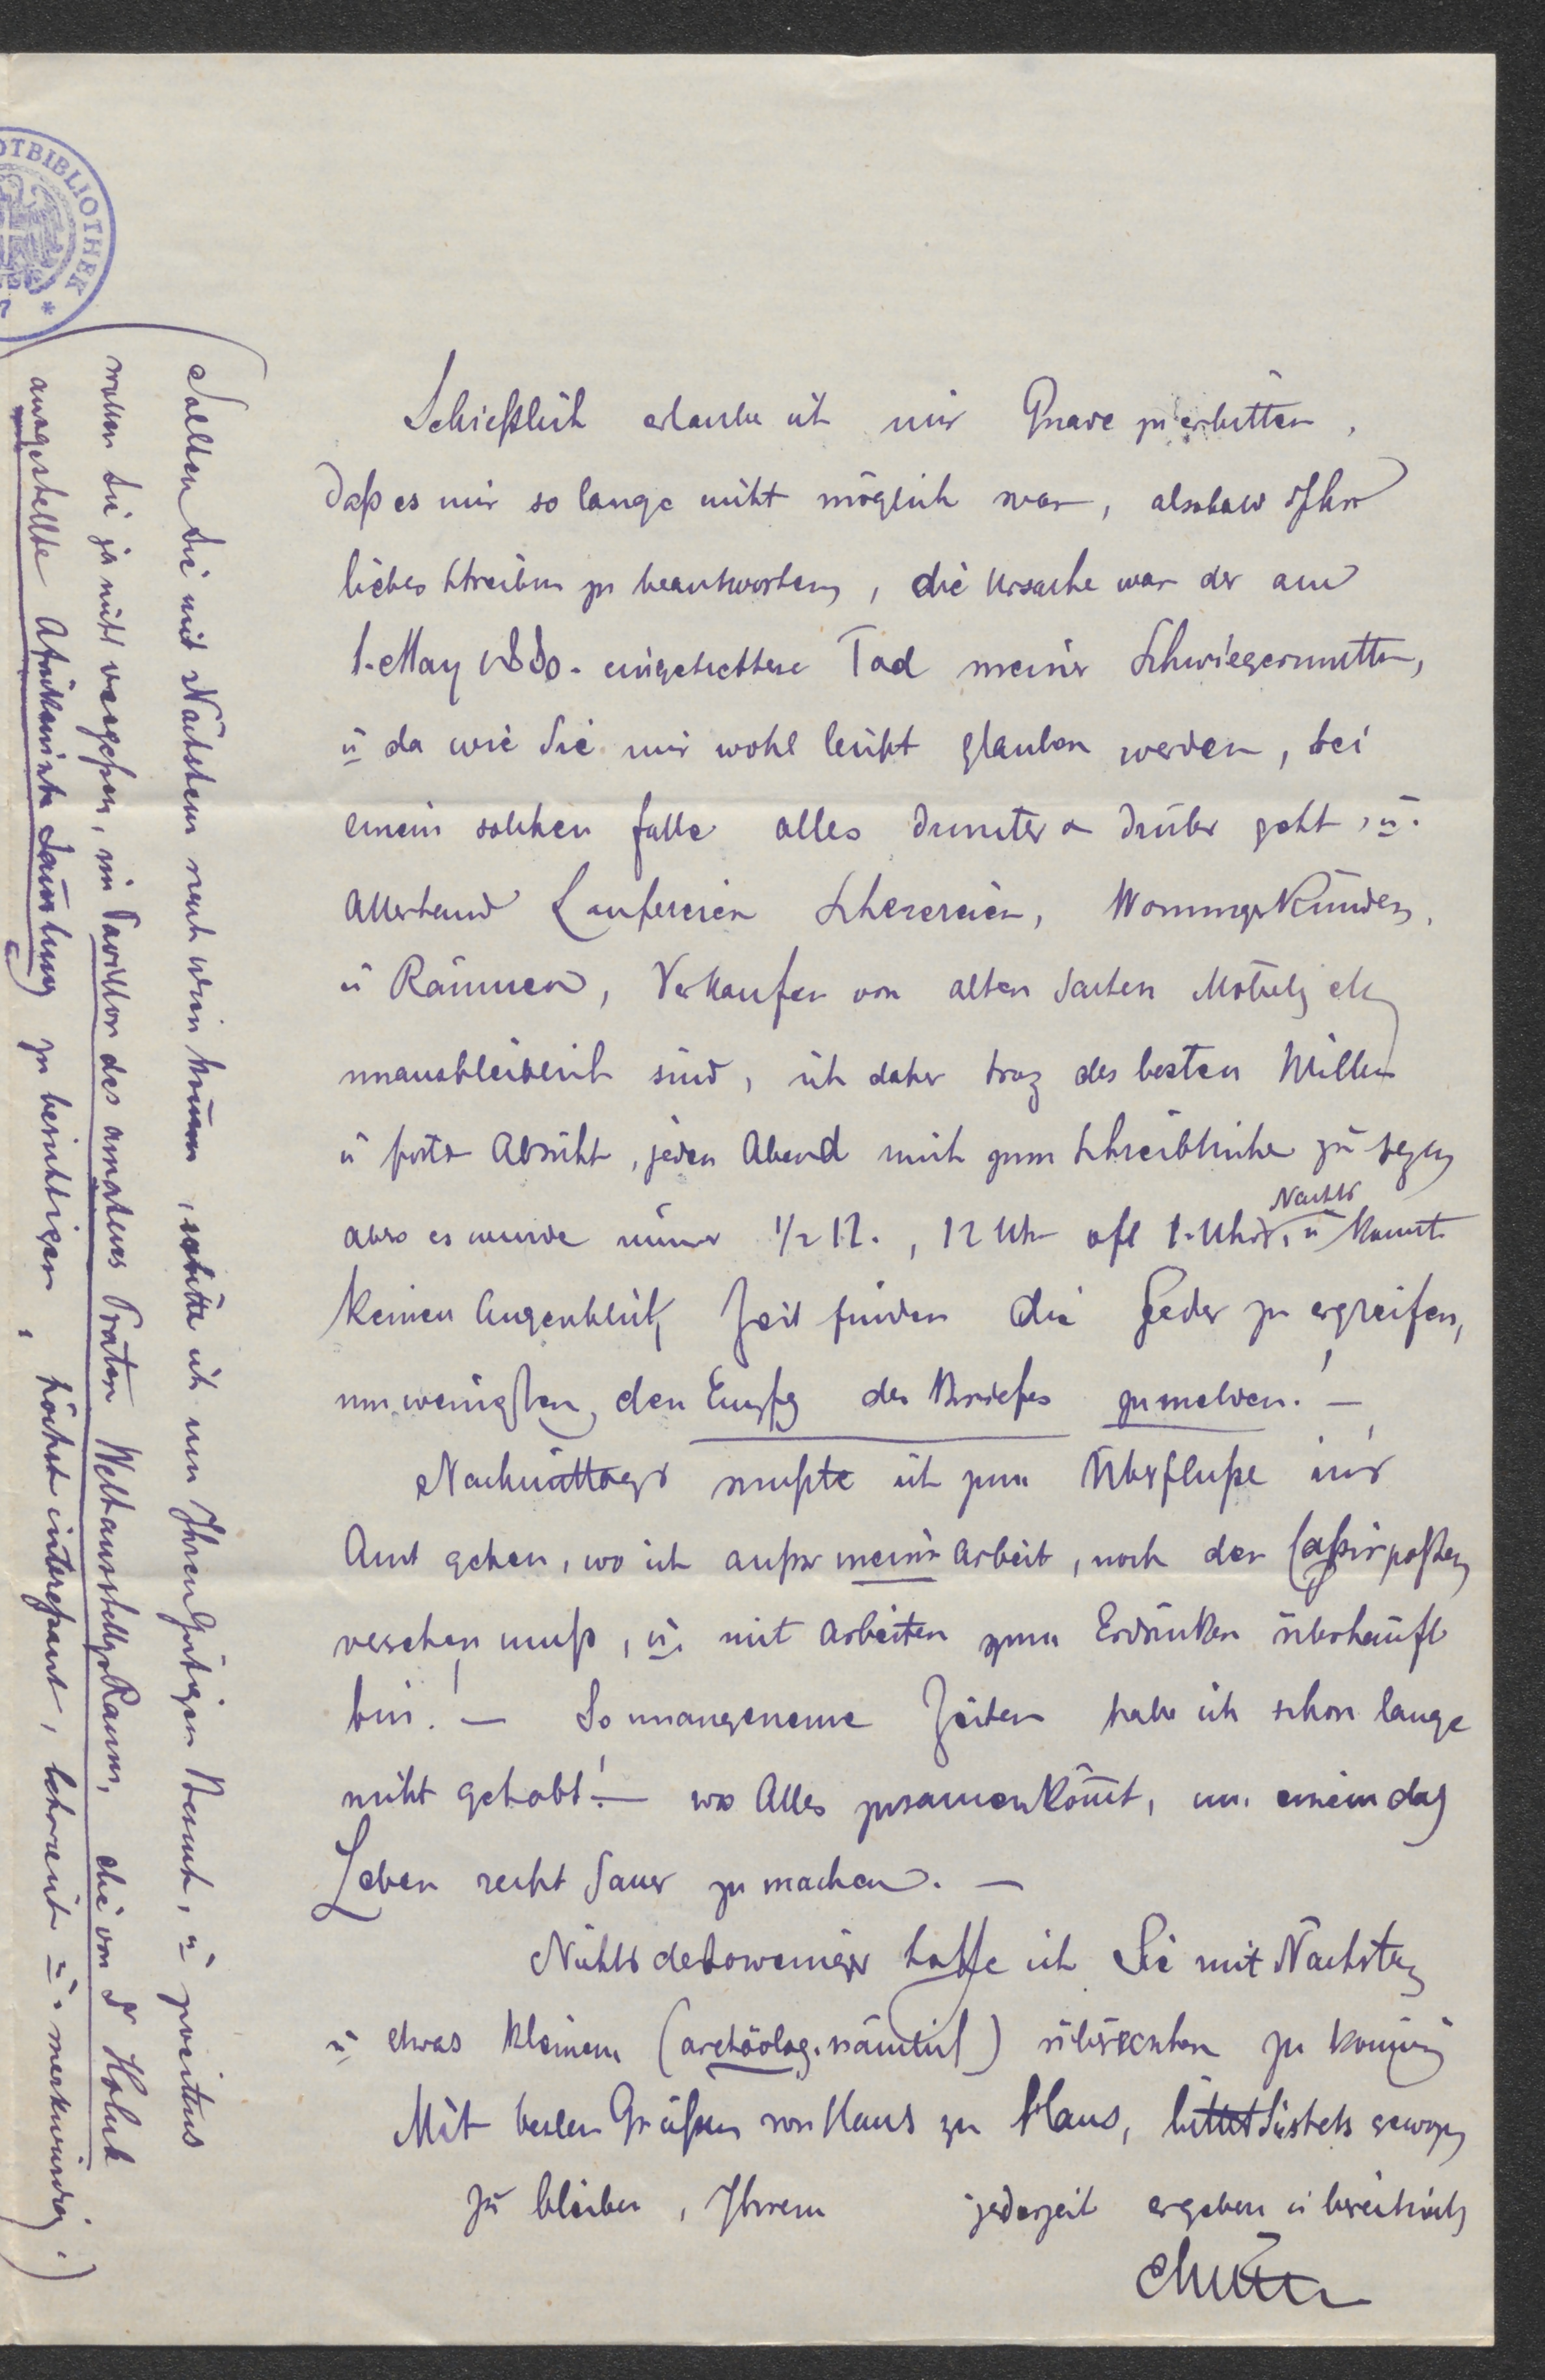 Schießlich erlaube ich mir Gnade zu erbitten,
daß es mir so lange nicht möglich war, alsobald Ihr
liebes Schreiben zu beantworten, die Ursache war der am
1. May 1880. eingetrettene Tod meiner Schwiegermutter,
ü da wie Sie mir wohl leicht glauben werden, bei
einem solchen Falle alles drunter & drüber geht, ü.
allerhand Laufereien Scherereien, Wonungskünden,
ü Räumen, Verkaufen von alten Sachen Möbels etc
unausbleiblich sind, ich daher troz des besten Willen
ü Absicht, jeden Abend mich zum Schreibtische zu sezen
aber es wurde immer ½ 12., 12 Uhr oft 1. Uhr Nachts, ü konnt
keinen Augenblick Zeit finden die Feder zu ergreifen,
um wenigsten den Empfg des Briefes zu melden! —
Nachmittags mußte ich zum Überfluße in's
Amt gehen, wo ich außer meiner Arbeit, noch den Caßirposten
versehen muß, ü. mit Arbeiten zum Erdrücken überhäuft
bin! — So unangeneme Zeiten habe ich schon lange
nicht gehabt! — wo Alles zusamenkom̄t, um einem das
Leben recht Sauer zu machen. —
Nichts destoweniger hoffe ich Sie mit Nächsten
ü etwas kleinem (archäolog. nämlich) überraschen zu können
Mit besten Grüßen von Haus zu Haus, bittet Sie stets gewogen
zu bleiben, Ihrem jederzeit ergeben ü bereitwil
(Sollten Sie mit Nächstem nach Wien kommen, so bitte ich um Ihren Gütigen Besuch, ü
wollen Sie ja nicht vergeßen, im Pavillon des amateurs Prater WeltausstellgsRaum, die von Dr Holub
ausgestellte Afrikanische Sam̄lung zu besichtigen, höchst intereßant, lehrreich ü. merkwürdig.)
OTBIBLIOTHEK *
7